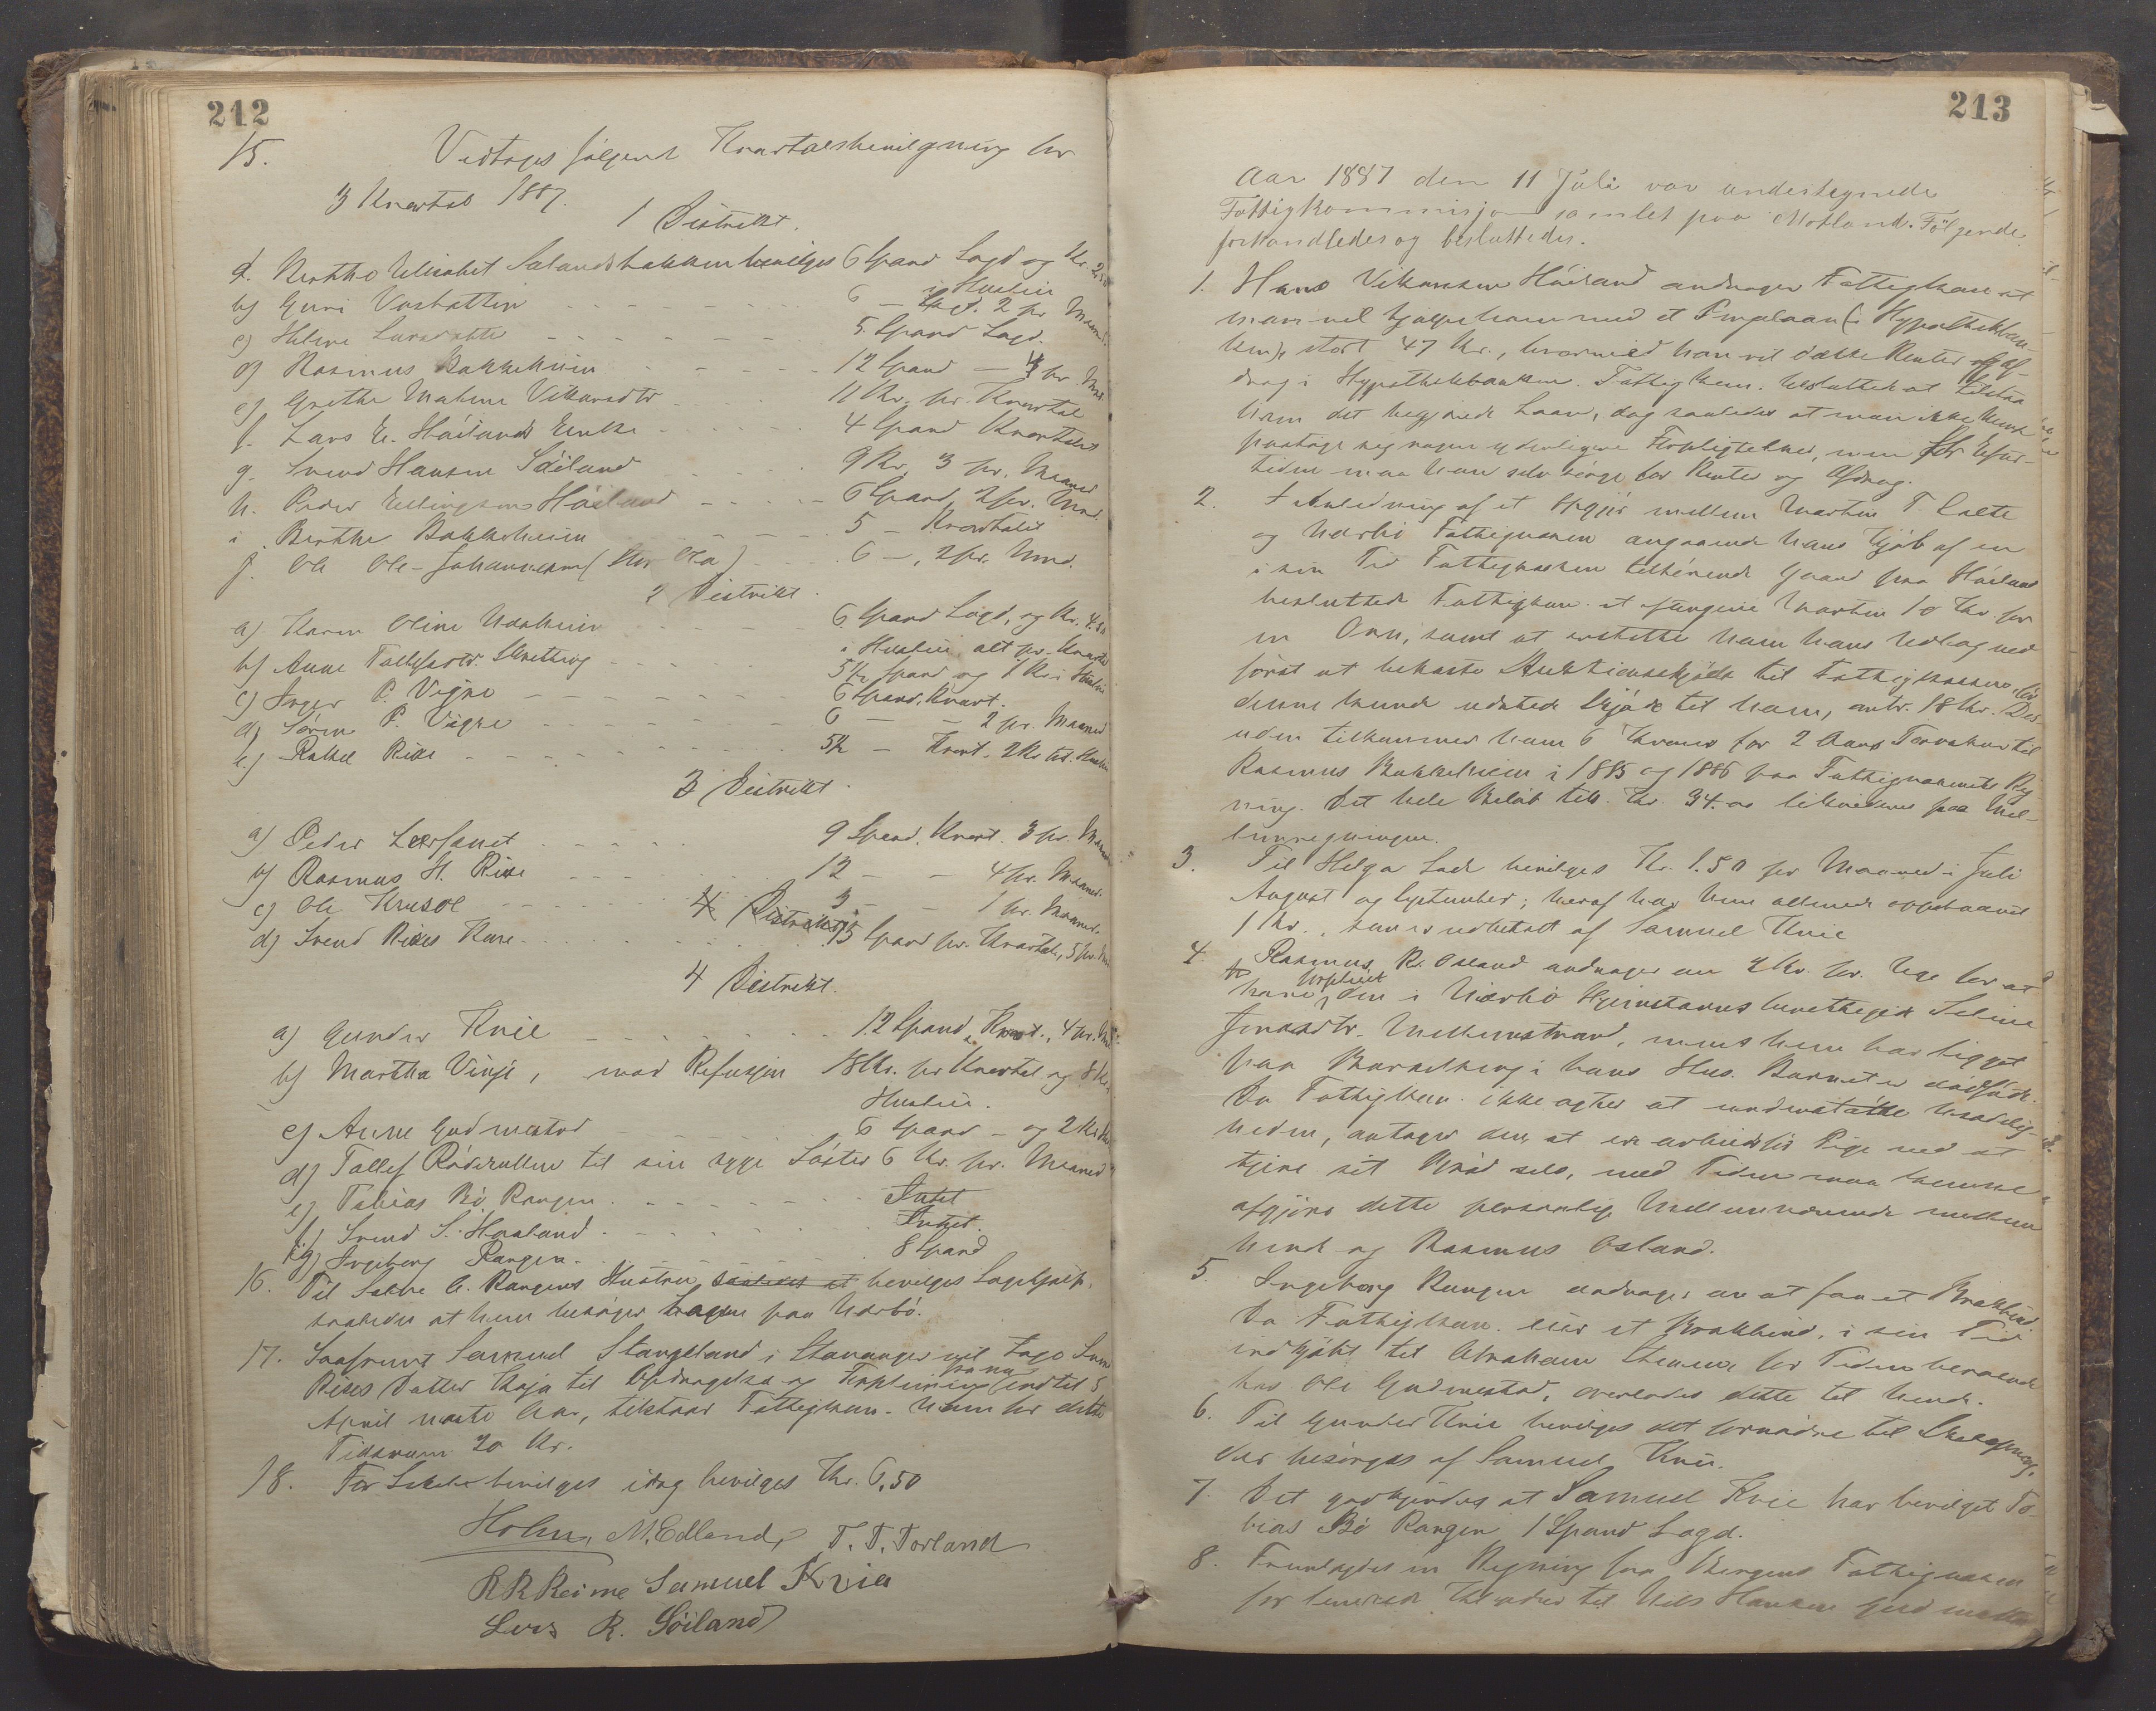 212
15. Vedtoges følgende Kvartalsbevilgning for
3 Kvartal 1887.
1 Distrikt.
a. Berthe Elisabet Sælandsbakken bevilges 6 Spand Lagd og Kr. 2,50
i Husleie
b) Guri Varhattin 6 — Lagd. 2 pr Maaned
c) Helene Larsdatter 5 Spand Lagd.
d) Rasmus Bakkeheim 12 Spand — 4 pr. Mnd.
e) Grethe Malene Vikarsdtr 11 Kr. pr. Kvartal
f. Lars E. Høilands Enke 4 Spand Kvartalet
g. Svend Hansen Søiland 9 Kv, 3 pr. Maaned
h. Peder Ellingsens Høiland 6 Spand, 2 pr. Mnd.
i Berthe Bakkeheim 5 — Kvartalet
j. Ole Ole-Johannesen ( ) 6 —, 2 pr. Mnd.
2 Distrikt.
a) Karen Oline 6 Spand Lagd, og Kr. 4.50
i Husleie alt pr. Kvartal
b) Anne Tollefsdtr. Skretting 5½ Spand og 8 Kr i Husleie
c) Inger P. Vigre 6 Spand, Kvart.
d) Søren P. Vigre 6 — — 2 pr. Maaned
e.) Rakel Risa 5½ — Kvart. 2 Kr til Husleie
3 Distrikt.
a) Peder 9 Spand. Kvart. 3 pr. Maaned
b) Rasmus H. Risa 12 — — 4 pr. Maaned.
c) Ole Krusol 3 — — 1 pr. Maaned.
4 Distrikt
d) Svend Rises Kone 15 Spand pr. Kvartal, 5 pr. Mnd
4 Distrikt.
a) Gunder Kvie 12 Spand, Kvart., 4 pr. Mnd
b) Martha Vinje, mod Refusjon 18 Kr. pr Kvartal og 8 Kr.
Husleie.
c) Anne Gudmestad 6 Spand — og 2 Kr
d) Tollef Rødskullen til sin syge Søster 6 Kr. pr. Maaned
e) Tobias Bø Rangen Intet
f) Svend S. Haaland Intet.
g) Ingeborg Rangen 8 Spand
16. Til Rangens Hustru, saaledes at bevilges Lægehjælp,
saaledes at hun besøger Lægen paa Nærbø.
17. Saafremt Samuel Stangeland i Stavanger vil tage Svend
Rises Datter Kaja til Opdragelse og Forpleining fra nu indtil
April næste Aar, tilstaar Fattigkom. ham for dette
Tidsrum 20 Kr.
18. For bevilges idag bevilges Kr. 6,50
Holm, M. Edland, T. T. Torland
R R Reime Samuel Kvia
Lars R. Söiland
213
Aar 1887 den 11 Juli var undertegnede
Fattigkommisjon samlet paa Motland. Fölgende
forhandledes og besluttedes.
1. Hans Vikarsen Høiland andrager Fattigkom. at
man vil hjælpe ham med et Pengelaan (i Hypothekban-
ken), stort 47 Kr., hvormed han vil dække Renter og Af-
drag i Hypothekbanken. Fattigkom. besluttede at tilstaa
ham det begjærede Laan, dog saaledes at man ikke kunde
paatage sig nogen yderligere Forpligtelser, men for Efter-
tiden maa han selv sørge for Renter og Afdrag.
2. I Anledning af et Opgjør mellem Martin T.
og Nærbø Fattigvæsen angaaende hans Kjøb af en
i sin Tid Fattigkassen tilhørende Gaard paa Høiland
besluttede Fattigkom. at Martin 10 Kr for
en Ovn, samt at erstatte ham hans Udlæg ved
først at bekoste Auktionsskjøde til Fattigkassen, før
denne kunde udstede Skjøde til ham, omtr. 18 Kr. Des-
uden tilkommer ham 6 Kroner for 2 Aars Torvskur til
Rasmus Bakkeheim i 1885 og 1886 paa Fattigvæsenets Reg-
ning. Det hele Beløb tils. Kr. 34.00 likvideres paa Mel-
lemregningen.
3. Til Helga Lode bevilges Kr. 1.50 pr Maaned i Juli
August og September; heraf har hun allerede oppebaaret
1 Kr., som er udbetalt af Samuel Kvie
4. Rasmus R. Osland andrager om 4 Kr. pr. Uge for at
have forpleiet den i Nærbø Hjemstavnsberettigede Seline
Jonasdtr. Mellemstrand, mens hun har ligget
paa Barselseng i hans Hus. Barnet er dødfødt.
Da Fattigkom. ikke agter at understøtte Usædelig-
heden, antager den, at en arbeidsfør Pige ved at
tjene sit Brød selv, med Tiden maa kunne
afgjøre dette personlige Mellemværende mellem
hende og Rasmus Osland.
5. Ingeborg Rangen andrager om at faa et Brokbind.
Da Fattigkom. eier et Brokbind, i sin Tid
indkjøbt til Abraham for Tiden værende
hos Ole Gudmestad, overlades dette til hende.
6. Til Gunder Kvie bevilges det fornødne til
der besørges af Samuel Kvie.
7. Det godkjendes at Samuel Kvie har bevilget To-
bias Bø Rangen 1 Spand Lagd.
8. Fremlagdes en Regning fra Bergens Fattigvæsen
for leverede Klæder til Nils Hansen Gudmestad